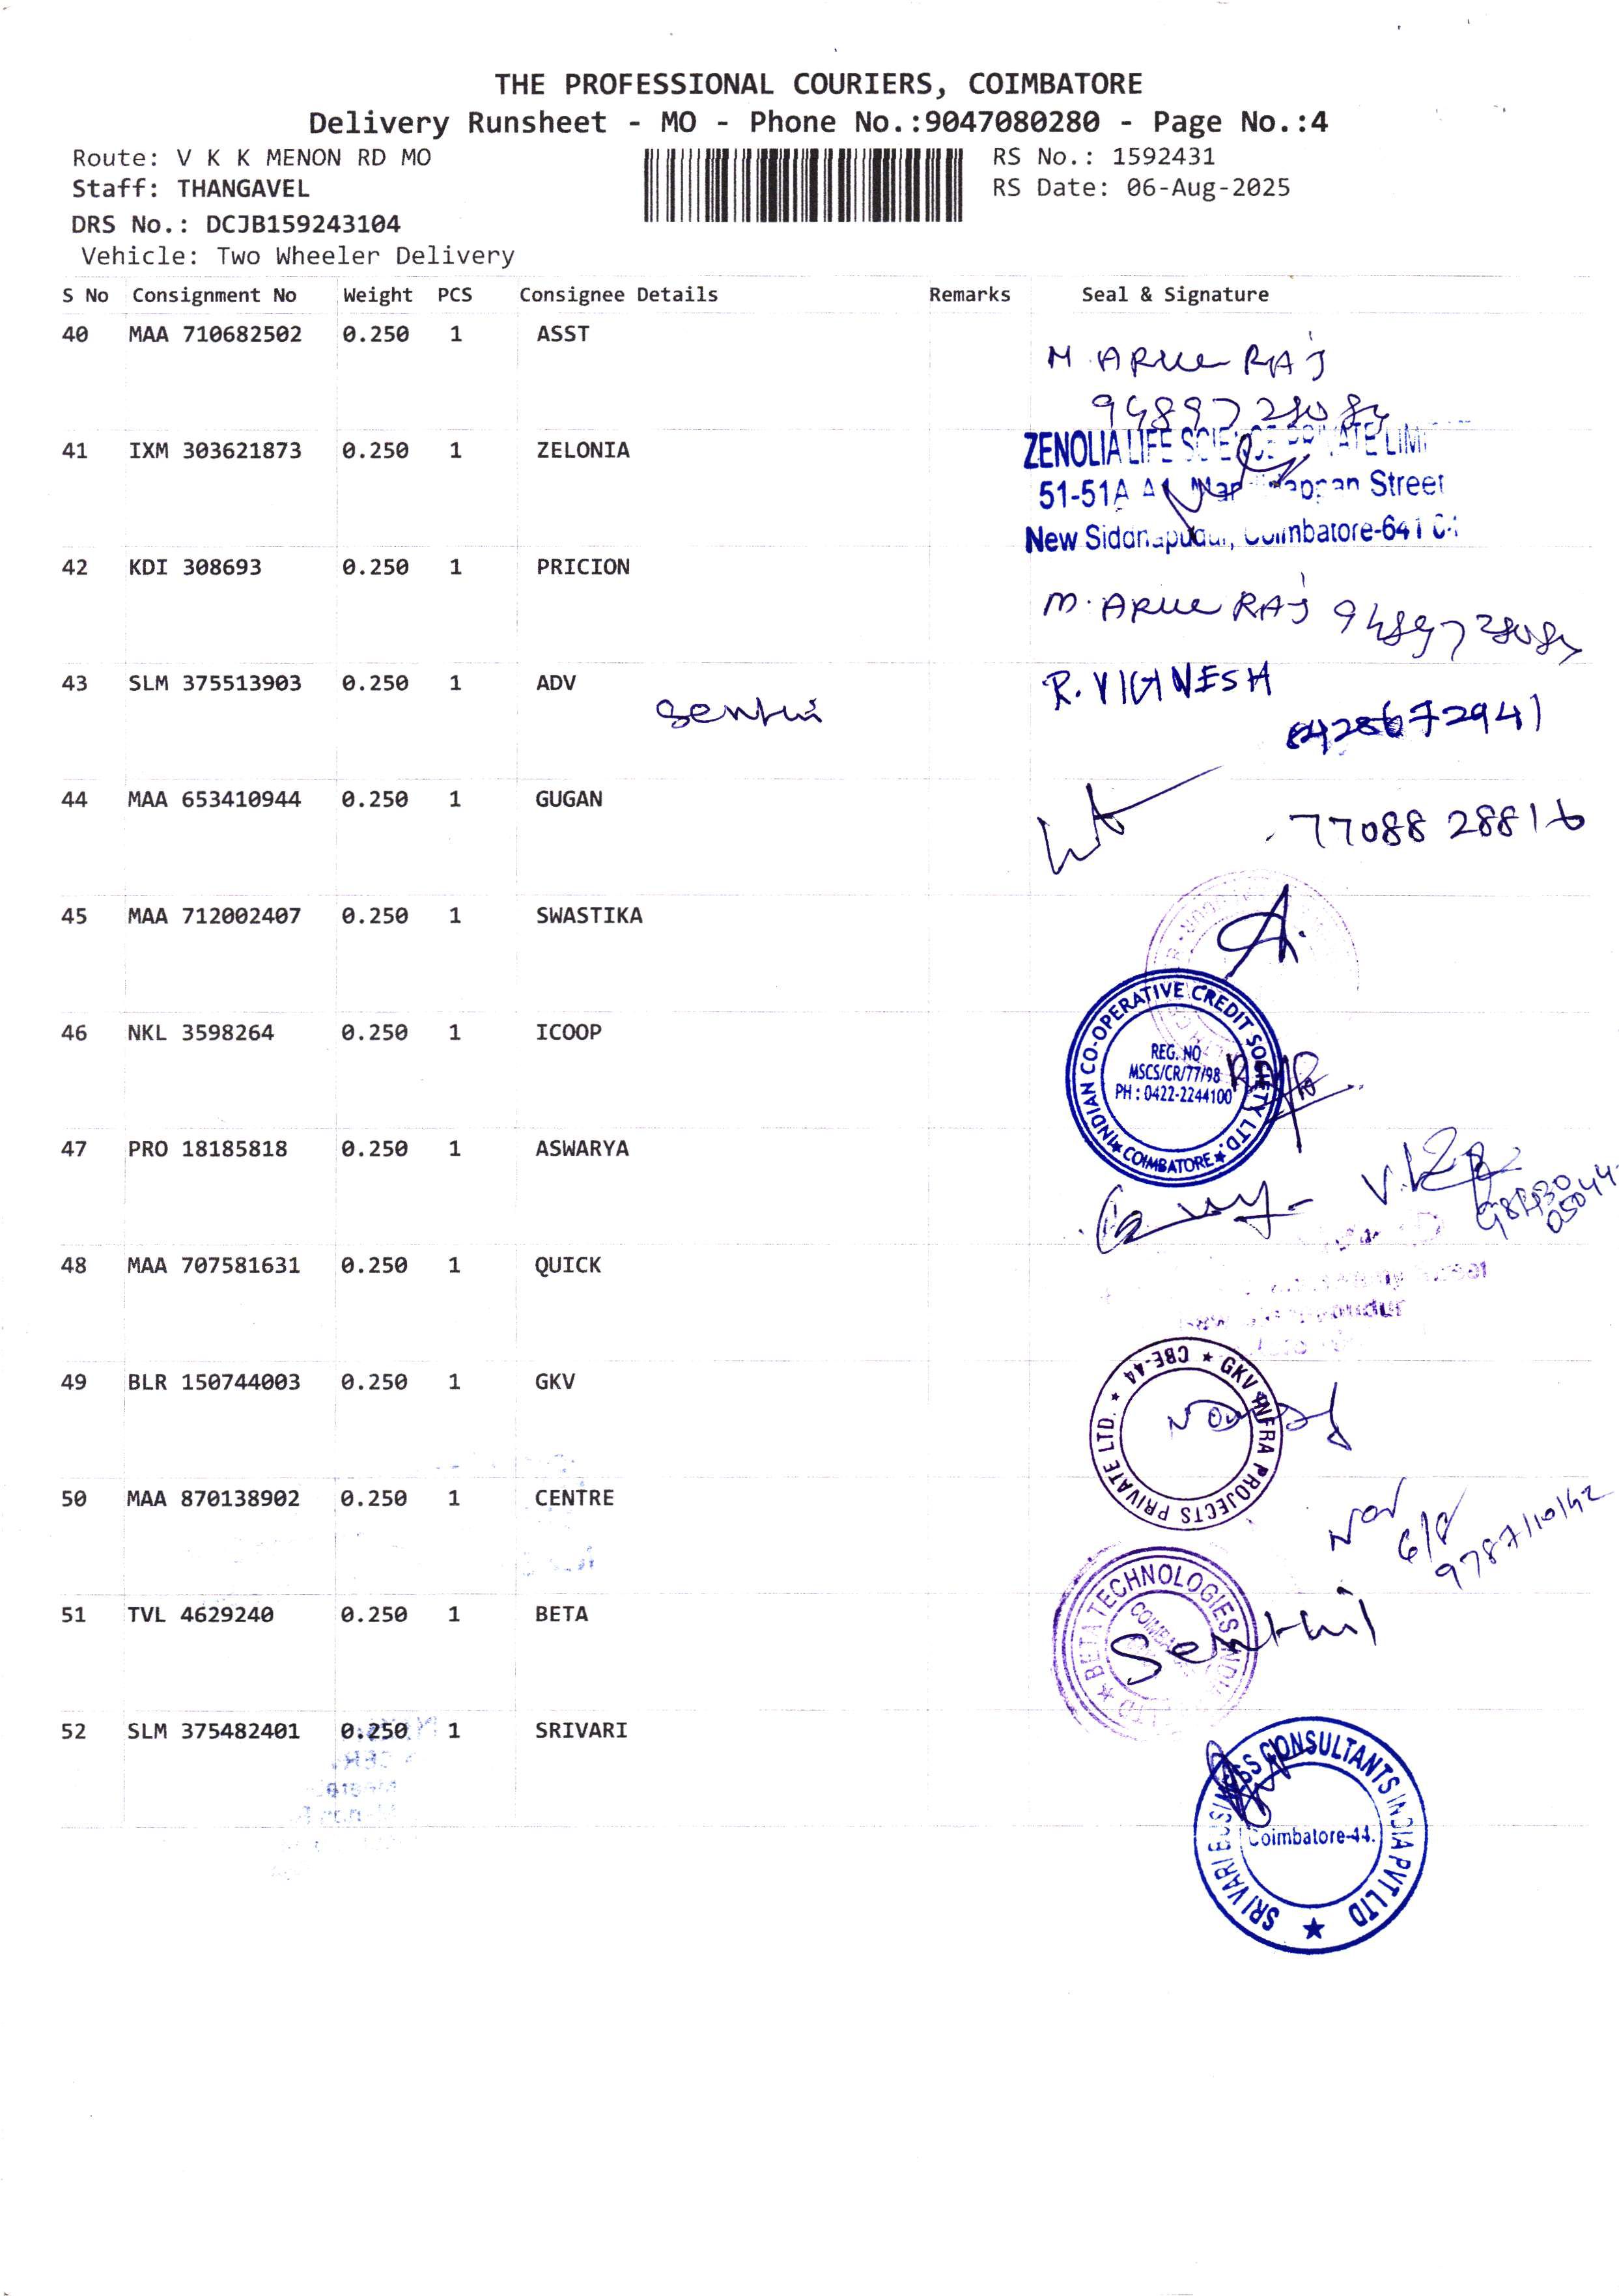 THE PROFESSIONAL COURIERS, COIMBATORE
Delivery Runsheet - MO - Phone No.:9047080280 - Page No.:4
Route: V K K MENON RD MO
Staff: THANGAVEL
DRS No.: DCJB159243104
Vehicle: Two Wheeler Delivery
RS No.: 1592431
RS Date: 06-Aug-2025
S No Consignment No Weight PCS Consignee Details Remarks Seal & Signature
40 MAA 710682502 0.250 1 ASST
M. ARUL RAJ
41 IXM 303621873 0.250 1 ZELONIA
ZENOLIA LIFE
51-51A Street
New Coimbatore-641
42 KDI 308693 0.250 1 PRICION
M. ARUL RAJ
43 SLM 375513903 0.250 1 ADV
R. VIGNESH
44 MAA 653410944 0.250 1 GUGAN
77088 28816
45 MAA 712002407 0.250 1 SWASTIKA
46 NKL 3598264 0.250 1 ICOOP
INDIAN CO-OPERATIVE CREDIT SOCIETY LTD.
REG. NO
MSCS/CR/77/98
PH : 0422-2244100
COIMBATORE
47 PRO 18185818 0.250 1 ASWARYA
48 MAA 707581631 0.250 1 QUICK
49 BLR 150744003 0.250 1 GKV
GKV INFRA PROJECTS PRIVATE LTD. ★ CBE-44 ★
50 MAA 870138902 0.250 1 CENTRE
6/8
9787110142
51 TVL 4629240 0.250 1 BETA
BETA TECHNOLOGIES
Senthil
52 SLM 375482401 0.250 1 SRIVARI
SRIVARI BUSINESS CONSULTANTS INDIA PVT LTD
Coimbatore-44.